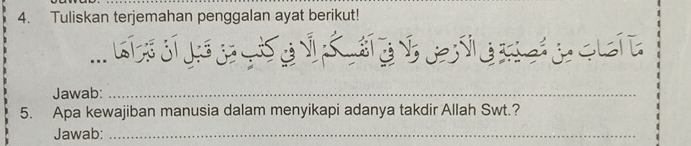 4. Tuliskan terjemahan penggalan ayat berikut!
مَآ اَصَابَ مِنْ مُّصِيْبَةٍ فِى الْاَرْضِ وَلَا فِيْٓ اَنْفُسِكُمْ اِلَّا فِيْ كِتٰبٍ مِّنْ قَبْلِ اَنْ نَّبْرَاَهَا ...
Jawab: ....................
5. Apa kewajiban manusia dalam menyikapi adanya takdir Allah Swt.?
Jawab: ....................